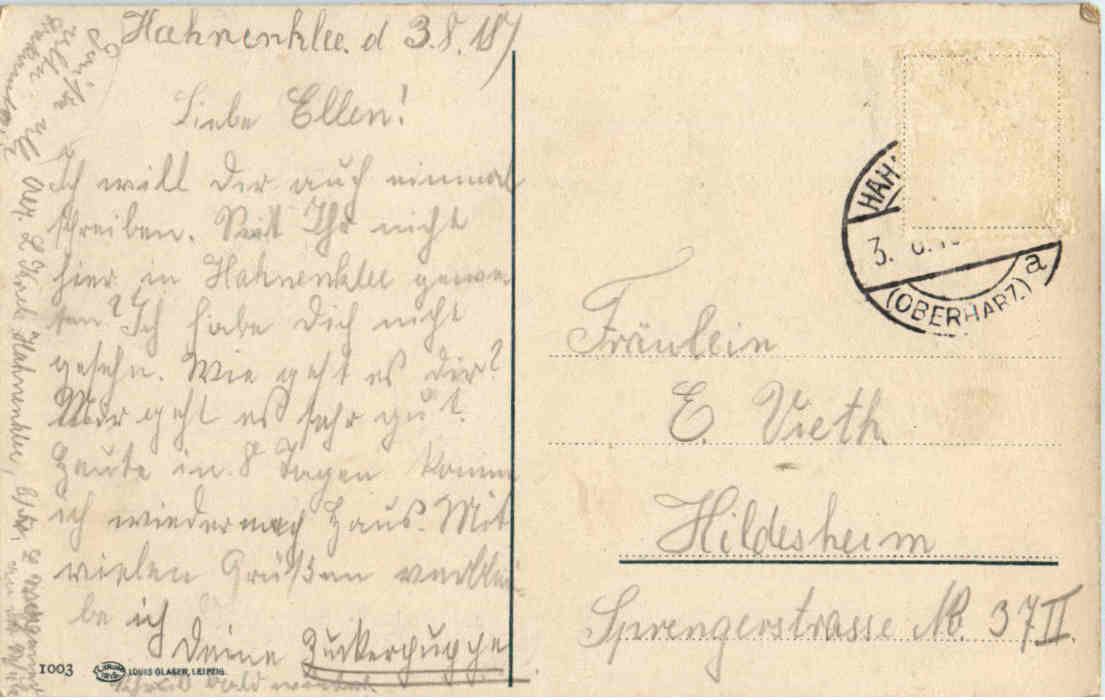 Hahnenklee. d 3.8.18
Liebe Ellen!
Ich will dir auch einmal
schreiben. Seit Ihr nicht
hier in Hahnenklee gewe-
sen? Ich habe dich nicht
gesehn. Wie geht es dir?
Mir geht es sehr gut.
Heute in 8 Tagen komme
ich wieder nach Haus. Mit
vielen Grüßen verblei-
be ich
Deine Zuckerpuppe
Schreib bald wieder.
Hahnenklee,
1003
LOUIS GLASER, LEIPZIG.
HAHN
3. 8. 18
(OBERHARZ.) a
Fräulein
E. Vieth
Hildesheim
Sprengerstrasse No. 37 II.